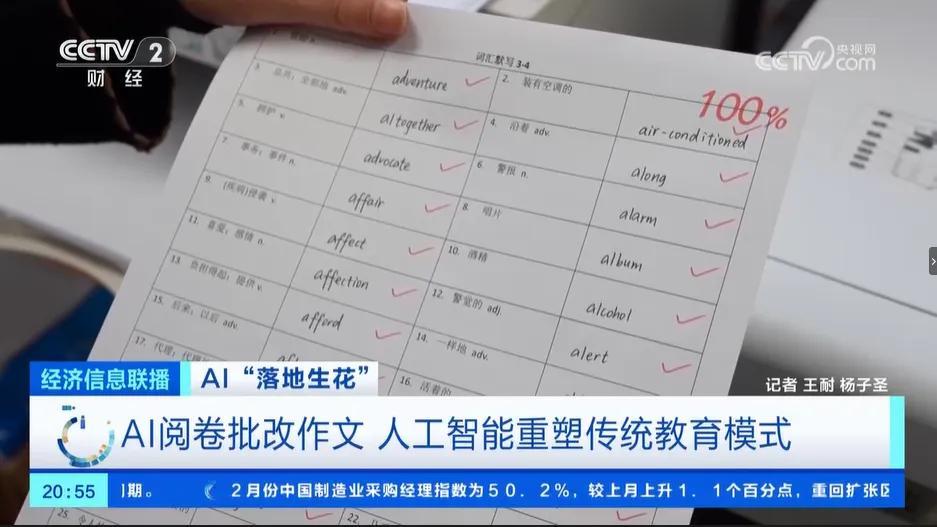 CCTV 2
财经
央视网
CCTV.com
词汇默写3-4
100%
3. 总共；全部地 adv.
adventure
2. 装有空调的
air-conditioned
5. 拥护 v.
altogether
4. 沿着 adv.
along
7. 事务；事件 n.
advocate
6. 警报 n.
alarm
9. (疾病)侵袭 v.
affair
8. 唱片
album
11. 喜爱；感情 n.
affect
10. 酒精
alcohol
13. 负担得起；提供 v.
affection
12. 警觉的 adj.
alert
15. 后来；以后 adv.
afford
14. 一样地 adv.
17. 代理；代理
16. 活着的
经济信息联播
AI“落地生花”
记者 王耐 杨子圣
AI阅卷批改作文 人工智能重塑传统教育模式
20:55
期。
2月份中国制造业采购经理指数为50．2%，较上月上升1．1个百分点，重回扩张区
25.
22.